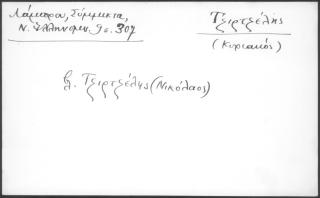 Λάμπρου, Σύμμικτα,
Ν. Ἑλληνομν. 9 σ. 307
Τζιρτζέλης
(Κυριακός)
βλ. Τζιρτζέλης (Νικόλαος)